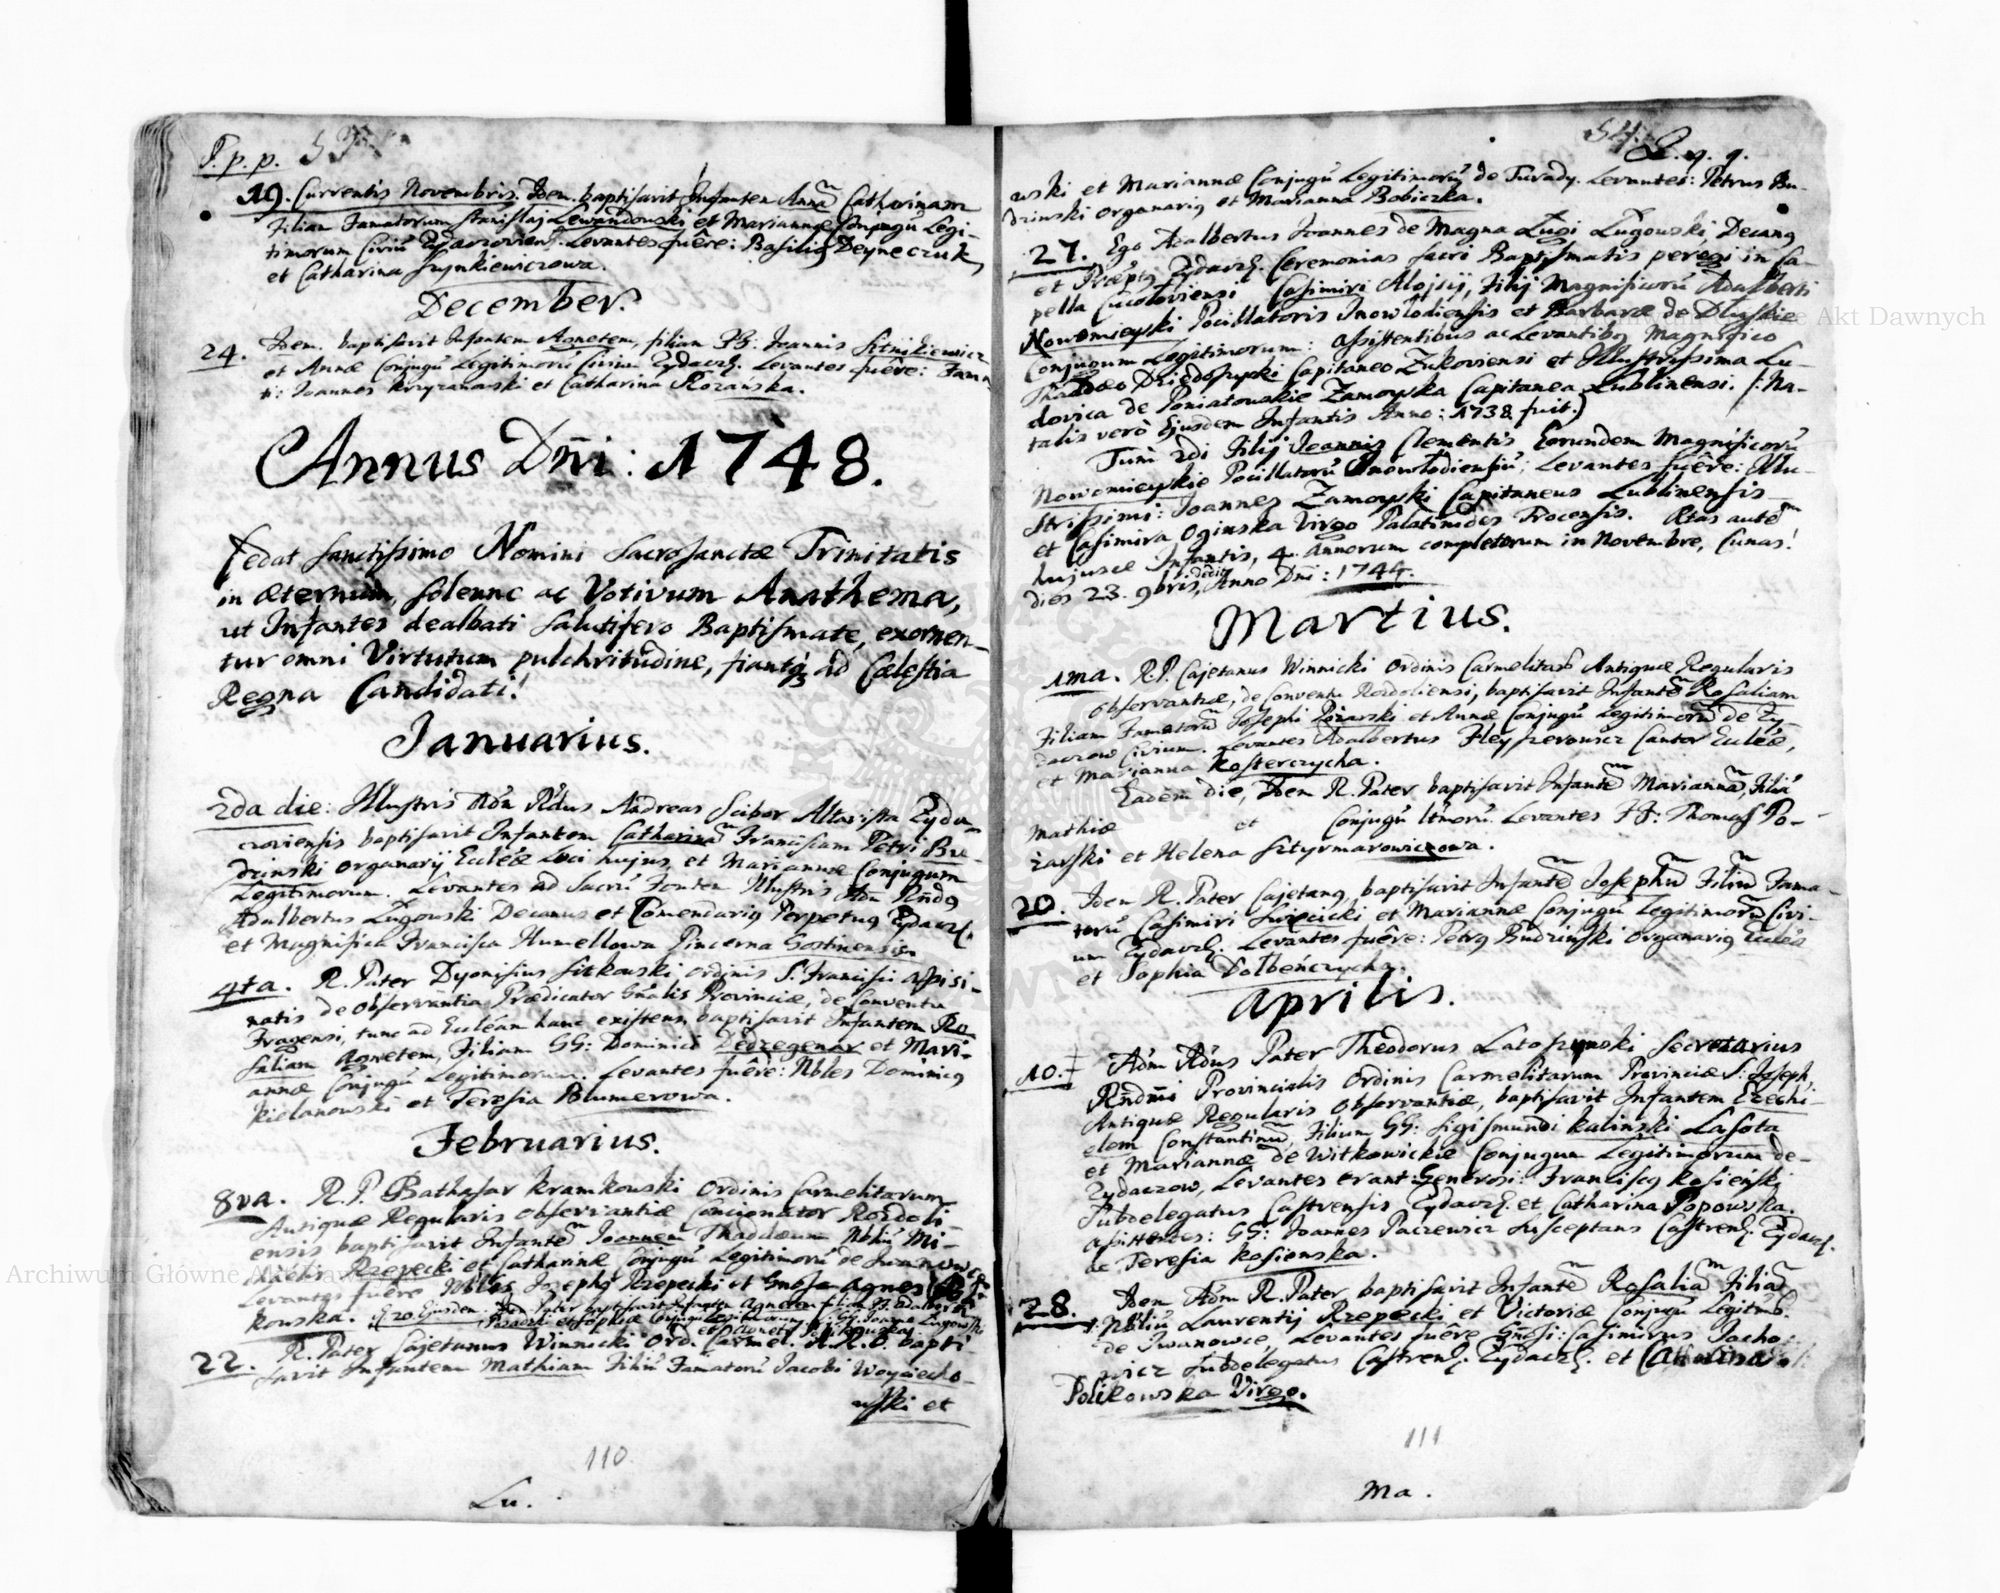 P. p. p. 53
19. Currentis Novembris. Idem baptisavit Infantem Annam Catharinam
Filiam Famatorum Stanislaj Lewandouski et Mariannæ Conjugũ Legi-
timorum Civiũ Zydaczoviens. Levantes fuêre: Basilig Deyneczuk,
et Catharina Hrynkiewiczowa.
December.
24. Idem baptisavit Infantem Agnetem, filiam Joannis Sitnikiewicz
et Annæ Conjugũ Legitimorũ Civium Zydacz. Levantes fuêre: Fama
ti: Joannes Krzyzanoski et Catharina Rozanska.
Annus Dñi: 1748.
Cedat Sanctissimo Nomini Sacrosanctæ Trinitatis
in æternum, solenne ac Votivum Anathema,
ut Infantes dealbati salutifero Baptismate, exornen-
tur omni Virtutum pulchritudine, fiantq3 ad Cælestia
Regna Candidati!
Januarius.
2da die: Illustris Adm Rdus Andreas Scibor Altarista Zyda-
czoviensis baptisavit Infantem Catharinam Franciscam Petri Bu-
dzinski Organarij Eccléæ Loci hujus, et Mariannæ Conjugum
Legitimorum. Levantes ad Sacrũ Fontem Illustris Adm Rndg
Adalbertus Lugowski Decanus et Comendarig Perpetug Zydacz.
et Magnifica Francisca Humellowa Pincerna Gostinensis
4ta. R. Pater Dyonisius Sitkouski Ordinis S. Francisci Assisi-
natis de Observantia Prædicator Gñalis Provinciæ, de Conventu
Fragensi, tunc ad Eccléam hanc existens, baptisavit Infantem Ro-
saliam Agnetem, Filiam GG: Dominici Dedregenar et Mari-
annæ Conjugũ Legitimorum. Levantes fuêre: Nbles Dominicg
Kielanowski et Teresia Blumerowa.
Februarius.
8va. R. P. Bathasar Kramkouski Ordinis Carmelitarum
Antiquæ Regularis Observantiæ Concionator Rozdoli-
ensis baptisavit Infantem Joannem Thaddæum Nbliũ Mi-
chaelis Rzepecki et Catharinæ Conjugũ Legitimorũ de Iwanowce
Levantes fuêre Nobles Josephg Rzepecki et Gnosa Agnes
kouska. Eadem Pater baptisavit Infantem Agnetem filiam
22. R. Pater Cajetanus Winnicki Ord. Carmel. A. R. O. bapti-
savit Infantem Mathiam Filiũ Famatorũ Jacobi Woyciecho-
wski et
110
Lu.
54. Q. q. q.
wski et Mariannæ Conjugũ Legitimorũ de Turady. Levantes: Petrus Bu-
dzinski Organarig et Marianna Bobiczka.
27. Ego Adalbertus Joannes de Magna Lugi Lugowski, Decang
et Præptg Zydacz. Ceremonias Sacri Baptismatis peregi in Ca-
pella Cucoloviensi Casimiri Alojsij, Filij Magnificorũ Adalberti
Nowomieyski Pocillatoris Inowlodiensis et Barbaræ de Dluskie
Conjugum Legitimorum: assistentibus ac Levantibg Magnifico
Thaddæo Dziedoszycki Capitaneo Zukoviensi et Illustrissima Lu-
dovica de Poniatowskie Zamoyska Capitanea Lublinensi. (: Na-
talis verò Ejusdem Infantis Anno: 1738 fuit.)
Tum 2di Filij Joannis Clementis Eorundem Magnificorũ
Nowomieyskie Pocillatorũ Inowlodiensiũ; Levantes fuêre: Illu-
strissimi: Joannes Zamoyski Capitaneus Lublinensis
et Casimira Oginska Virgo Palatinides Trocensis. Ætas autem
hujusce Infantis, 4. annorum completorum in Novembre, Cunas!
dies 23. 9bris, dedit Anno Dñi: 1744.
Martius.
1ma. R. P. Cajetanus Winnicki Ordinis Carmelitarũ Antiquæ Regularis
Observantiæ, de Conventu Rozdoliensi, baptisavit Infantem Rosaliam
Filiam Famatorũ Josephi Pozarski et Annæ Conjugũ Legitimorũ de Zy-
daczow Civium. Levantes Adalbertus Fleyszerowicz Cantor Eccléæ,
et Marianna Kosterczycha.
Eadem die, Idem R. Pater baptisavit Infantem Mariannam, Filiã
Mathiæ et Conjugũ Ltmorũ. Levantes FF: Thomas Po-
zarski et Helena Sztyrmarowiczowa.
20. Idem R. Pater Cajetang, baptisavit Infantem Josephum Filium Fama-
torũ Casimiri Swiecicki et Mariannæ Conjugũ Legitimorũ Civi-
um Zydacz. Levantes fuêre: Petrg Budzinski Organarig Eccléæ
et Sophia Dolbenczycha.
Aprilis.
10. Adm Rdus Pater Theodorus Latoszynski Secretarius
Rñdmi Provincialis Ordinis Carmelitarum Provinciæ S: Joseph,
Antiquæ Regularis Observantiæ, baptisavit Infantem Ezechi-
elem Constantinum, Filium GG: Sigismundi Kalinski Lasota
et Mariannæ de Witkowickie Conjugum Legitimorum de-
Zydaczow, Levantes erant Generosi: Franciscg Kosieński
Subdelegatus Castrensis Zydacz. et Catharina Popowska.
Assistentes: GG: Joannes Paczewicz Susceptans Castrens. Zydacz.
ac Teresia Kosienska.
28. Idem Adm R. Pater baptisavit Infantem Rosaliam Filiam
Nbliũ Laurentij Rzepecki et Victoriæ Conjugũ Legitmo.
de Iwanowce, Levantes fuêre Gñosi: Casimirus Jacho-
wicz Subdelegatus Castrens. Zydacz. et Catharina
Polikowska Virgo.
111
Ma.
Archiwum Główne Akt Dawnych
Archiwum Główne Akt Dawnych